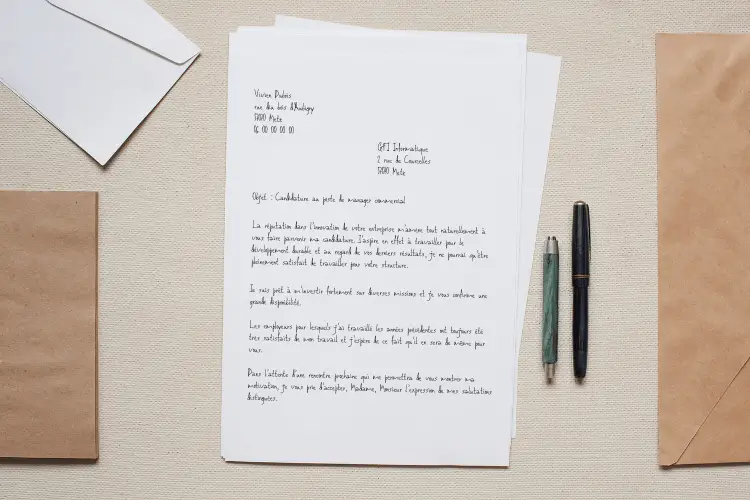 Vivien Dubois
rue du bois d'Audigny
57000 Metz
06 00 00 00 00
GMI Informatique
2 rue de Courcelles
57000 Metz
Objet : Candidature au poste de manager commercial
La réputation dans l'innovation de votre entreprise m'amène tout naturellement à
vous faire parvenir ma candidature. J'aspire en effet à travailler pour le
développement durable et au regard de vos derniers résultats, je ne pourrai qu'être
pleinement satisfait de travailler pour votre structure.
Je suis prêt à m'investir fortement sur diverses missions et je vous confirme une
grande disponibilité.
Les employeurs pour lesquels j'ai travaillé les années présidentes ont toujours été
très satisfaits de mon travail et j'espère de ce fait qu'il en sera de même pour
vous.
Dans l'attente d'une rencontre prochaine qui me permettra de vous montrer ma
motivation, je vous prie d'accepter, Madame, Monsieur l'expression de mes salutations
distinguées.